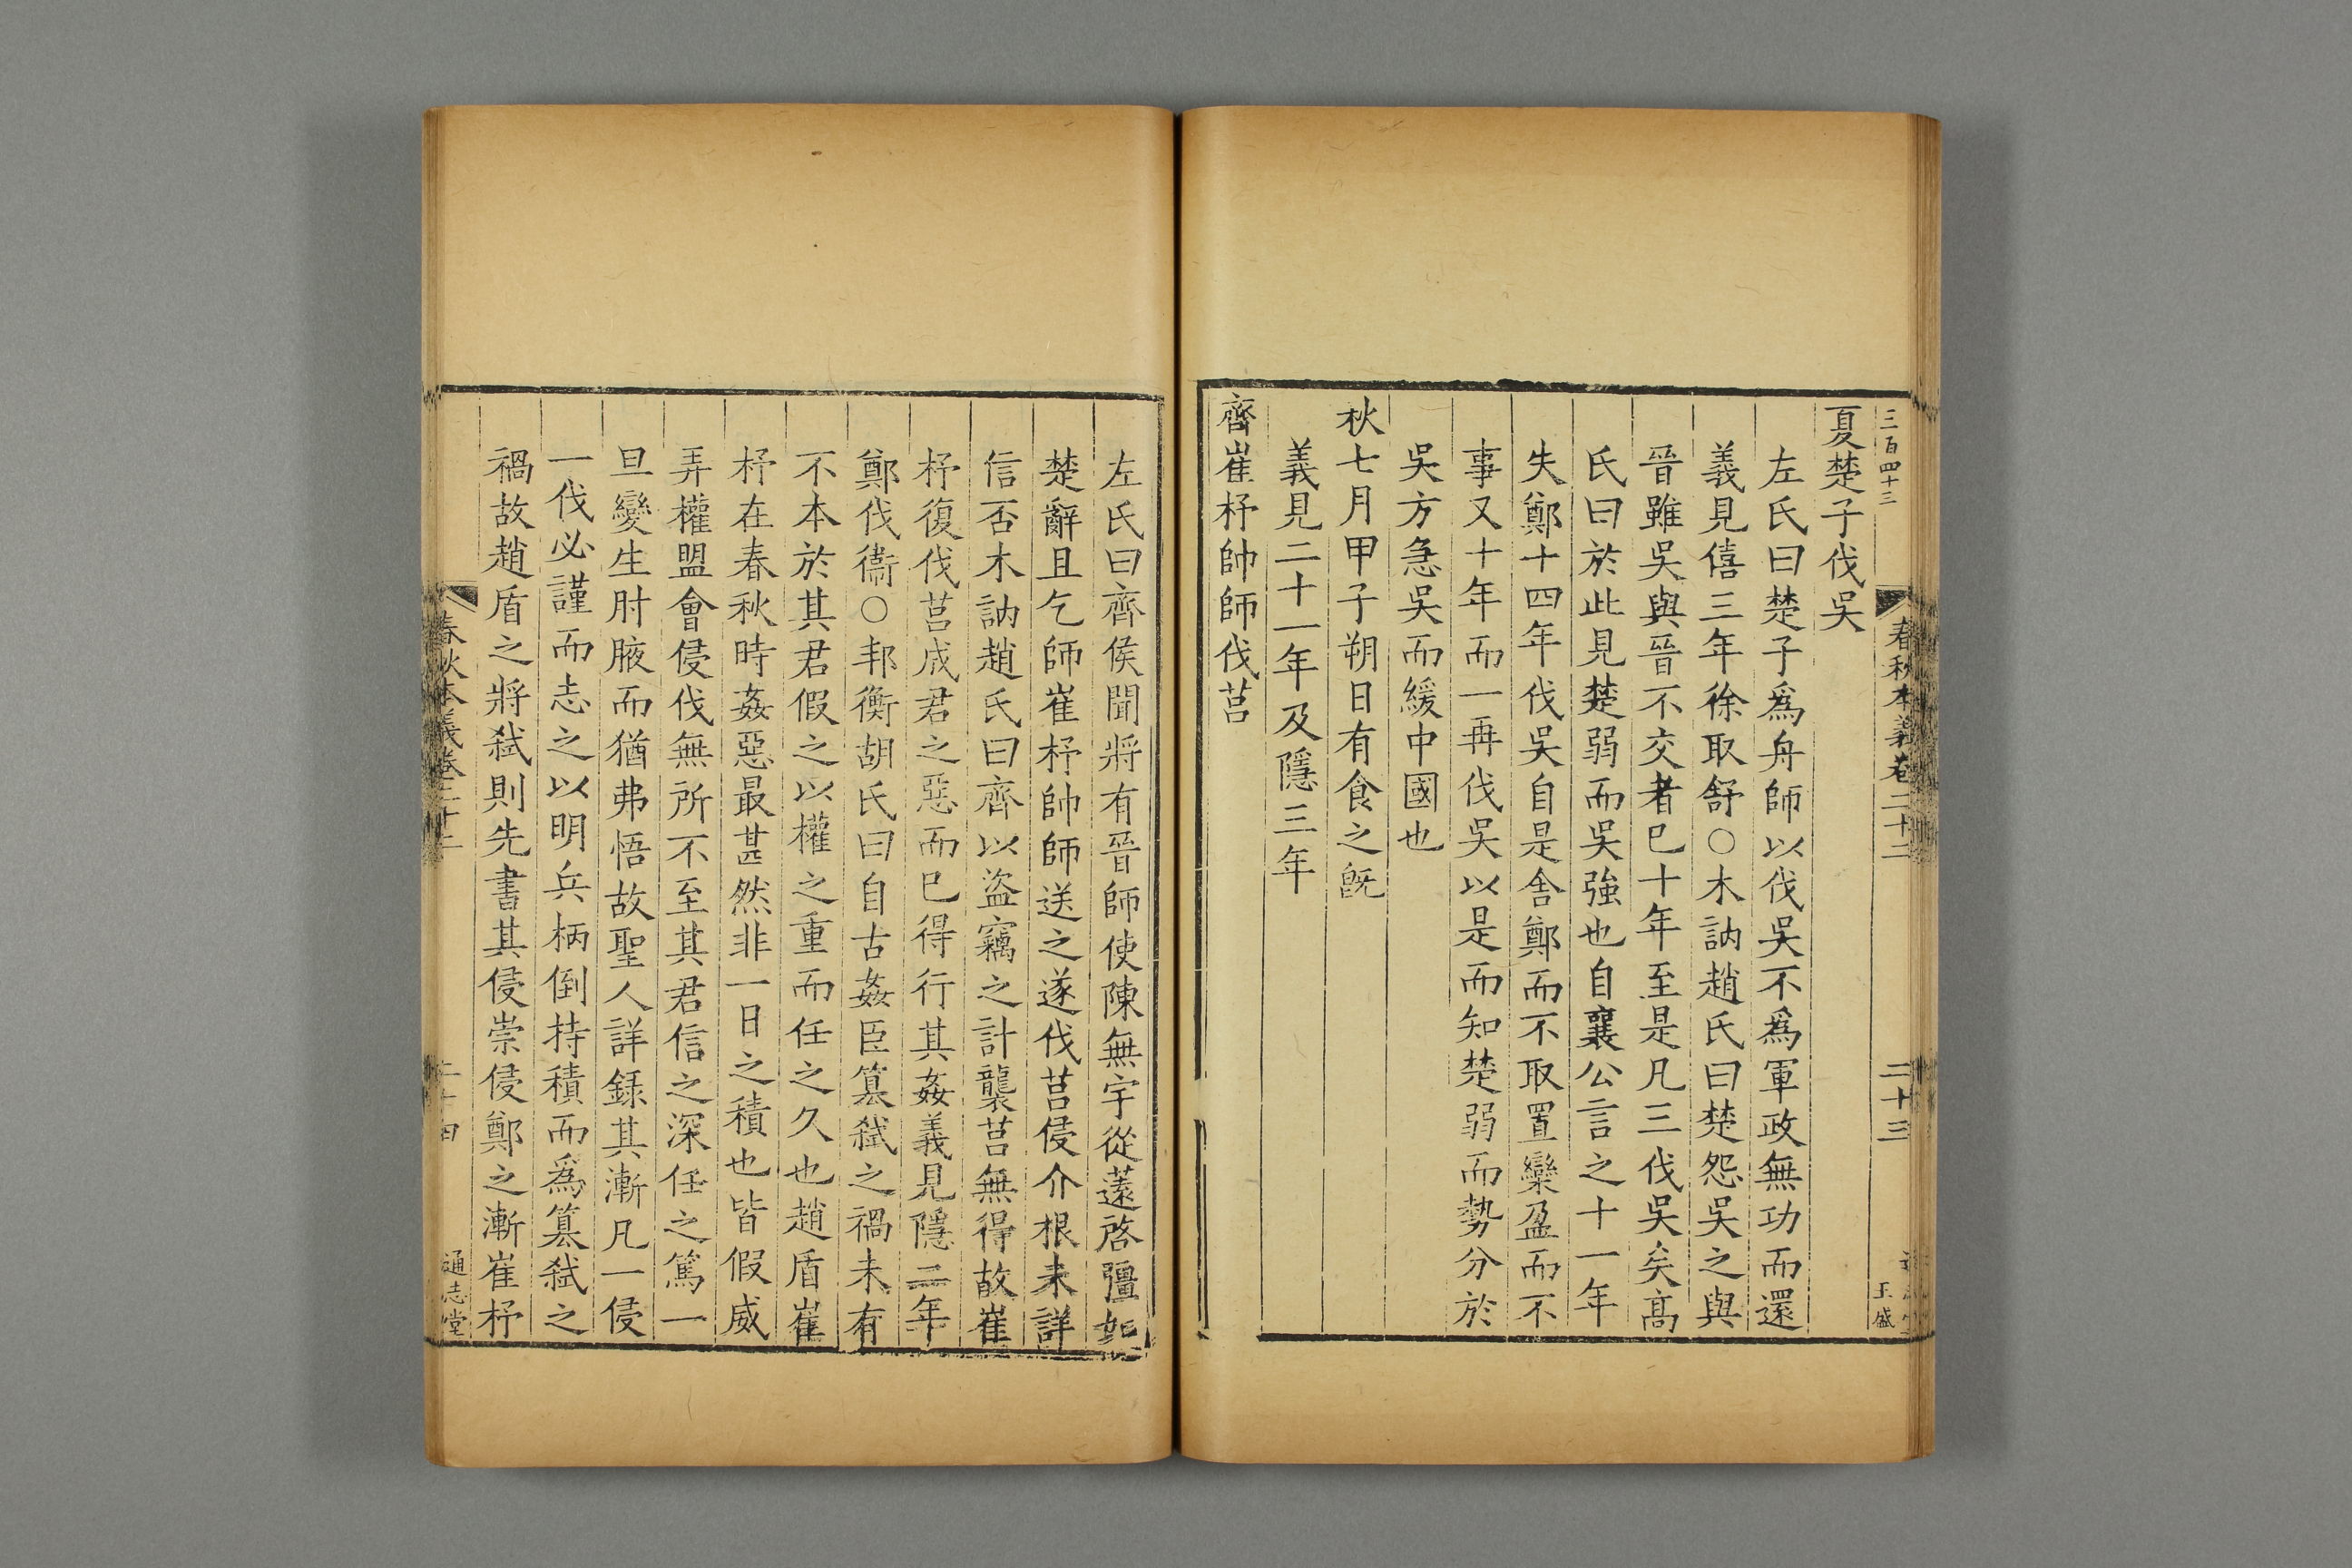 三百四十三
春秋本義卷二十二
二十三
玉盛
夏楚子伐吳
左氏曰楚子爲舟師以伐吳不爲軍政無功而還
義見僖三年徐取舒○木訥趙氏曰楚怨吳之與
晉雖吳與晉不交者巳十年至是凡三伐吳矣髙
氏曰於此見楚弱而吳強也自襄公言之十一年
失鄭十四年伐吳自是舍鄭而不取置欒盈而不
事又十年而一再伐吳以是而知楚弱而勢分於
吳方急吳而緩中國也
秋七月甲子朔日有食之旣
義見二十一年及隱三年
齊崔杼帥師伐莒
左氏曰齊侯聞將有晉師使陳無宇從薳啓彊如
楚辭且乞師崔杼帥師送之遂伐莒侵介根未詳
信否木訥趙氏曰齊以盜竊之計襲莒無得故崔
杼復伐莒成君之惡而巳得行其姦義見隱二年
鄭伐衞○邦衡胡氏曰自古姦臣簒弑之禍未有
不本於其君假之以權之重而任之久也趙盾崔
杼在春秋時姦惡最甚然非一日之積也皆假威
弄權盟會侵伐無所不至其君信之深任之篤一
旦變生肘腋而猶弗悟故聖人詳録其漸凡一侵
一伐必謹而志之以明兵柄倒持積而爲簒弑之
禍故趙盾之將弑則先書其侵崇侵鄭之漸崔杼
春秋本義卷二十二
二十四
通志堂